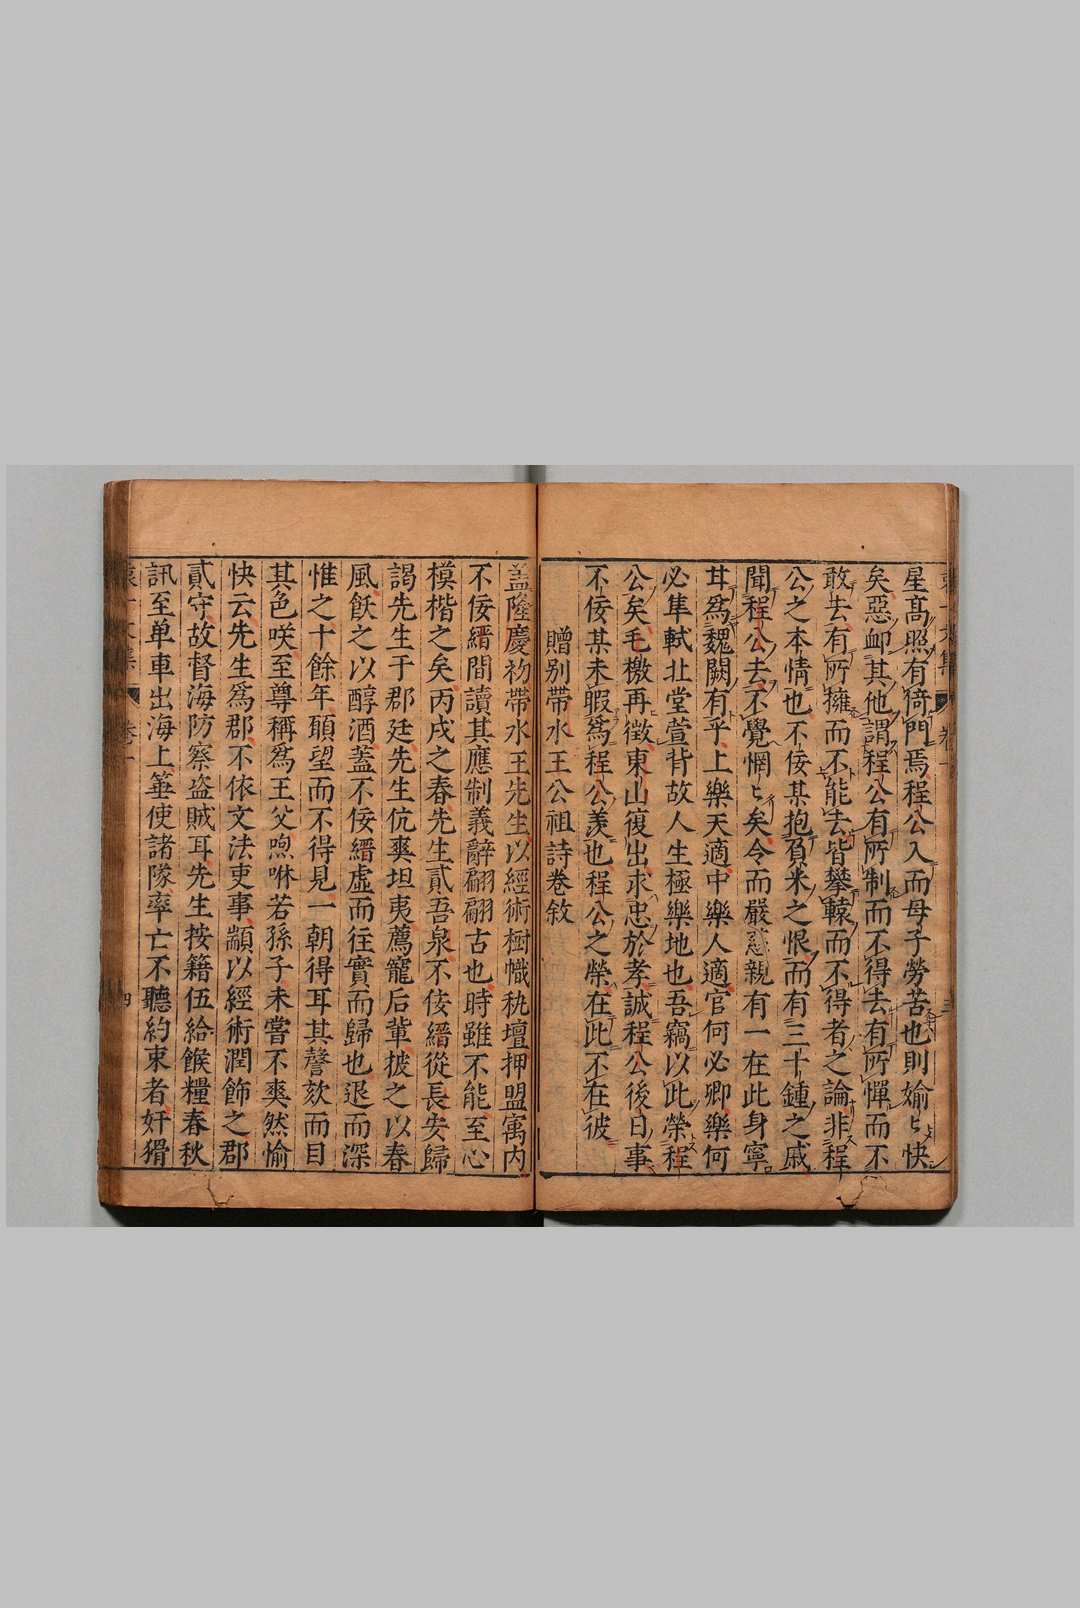 星高照有倚門焉程公入而母子勞苦也則媮〻快
矣惡卹其他謂程公有所制而不得去有所憚而不
敢去有所擁而不能去皆攀轅而不得者之論非程
公之本情也不佞某抱負米之恨而有三十鍾之戚
聞程公去不覺惘〻矣令而嚴慈親有一在此身寧
甘爲魏闕有乎上樂天適中樂人適官何必卿樂何
必隼軾北堂萱背故人生極樂地也吾竊以此榮程
公矣毛檄再徵東山復出求忠於孝誠程公後日事
不佞某未暇爲程公羡也程公之榮在此不在彼
贈別帶水王公祖詩卷敘
盖隆慶初帶水王先生以經術樹幟執壇押盟寓内
不佞縉間讀其應制義辭翩翩古也時雖不能至心
模楷之矣丙戌之春先生貳吾泉不佞縉從長安歸
謁先生于郡廷先生伉爽坦夷薦寵后輩披之以春
風飫之以醇酒蓋不佞縉虛而往實而歸也退而深
惟之十餘年願望而不得見一朝得耳其謦欬而目
其色咲至尊稱爲王父喣咻若孫子未嘗不爽然愉
快云先生爲郡不依文法吏事顓以經術潤飾之郡
貳守故督海防察盗賊耳先生按籍伍給餱糧春秋
訊至单車出海上箠使諸隊率亡不聽約束者奸猾
卷一
四